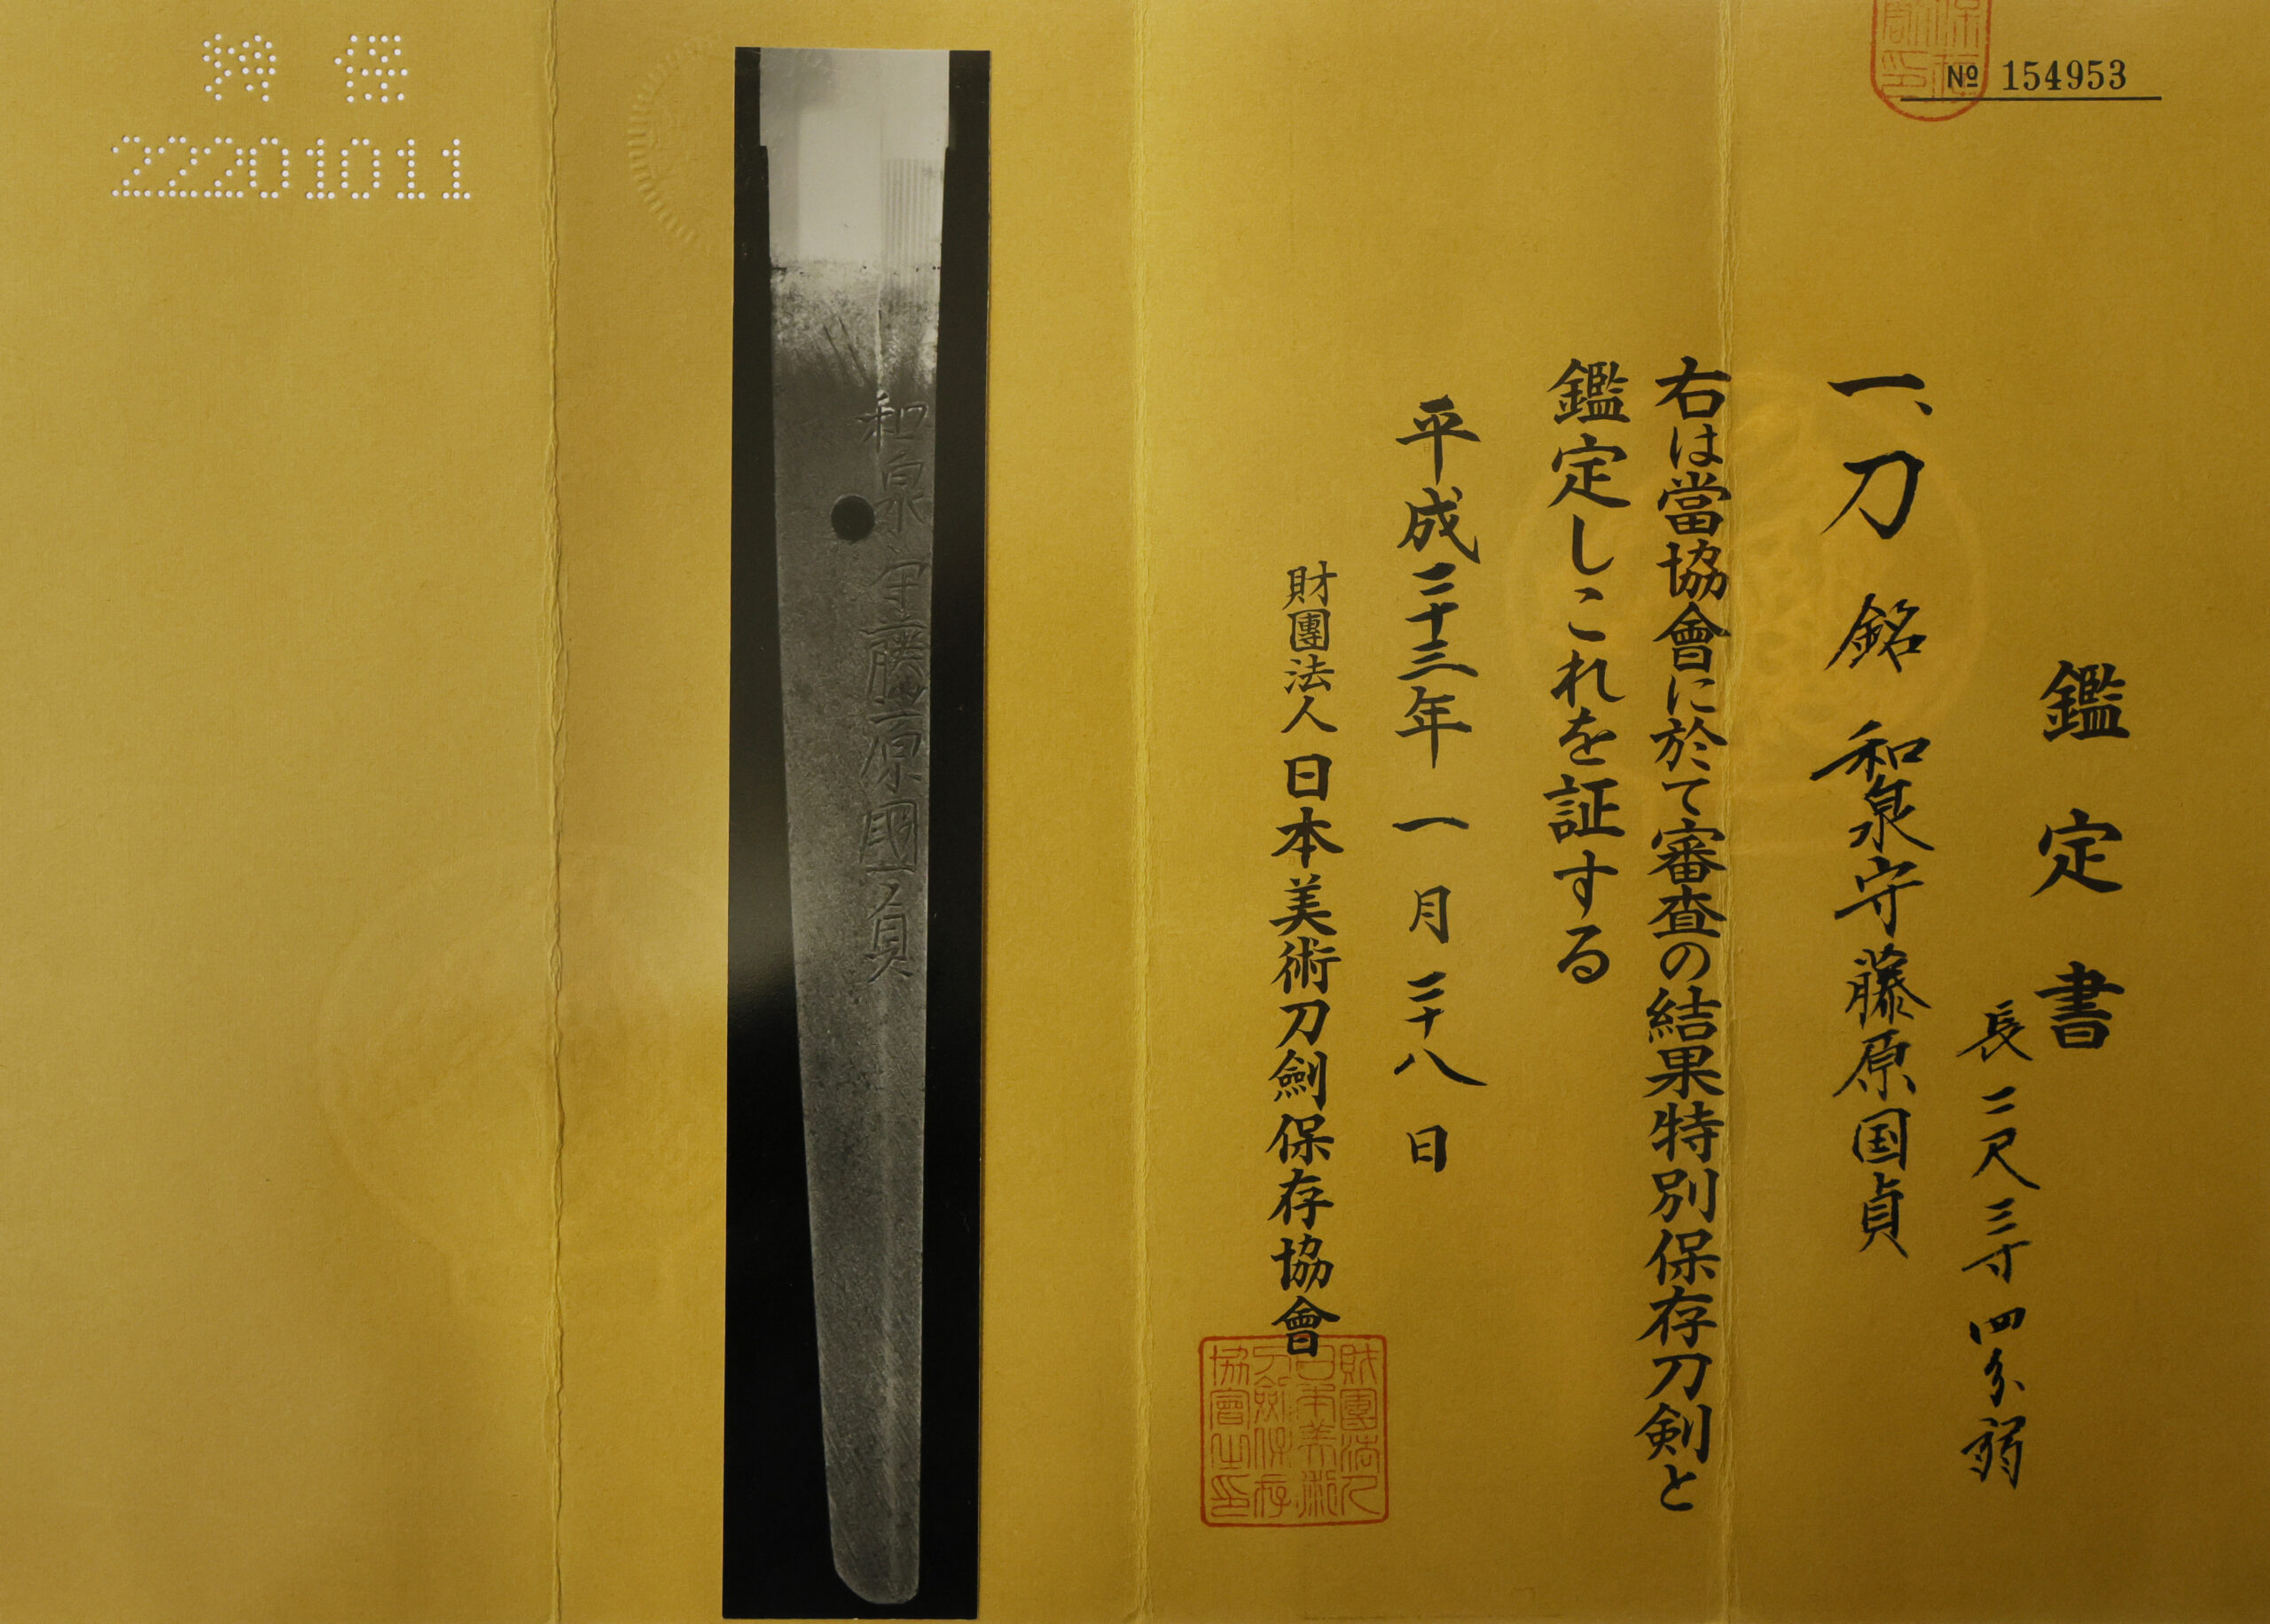 № 154953
鑑定書
長二尺三寸四分弱
一、刀 銘 和泉守藤原国貞
右は當協會に於て審査の結果特別保存刀剣と
鑑定しこれを証する
平成二十三年一月二十八日
財團法人日本美術刀劍保存協會
財團法人
日本美術
刀劍保存
協會之印
和泉守藤原國貞
特保
22201011